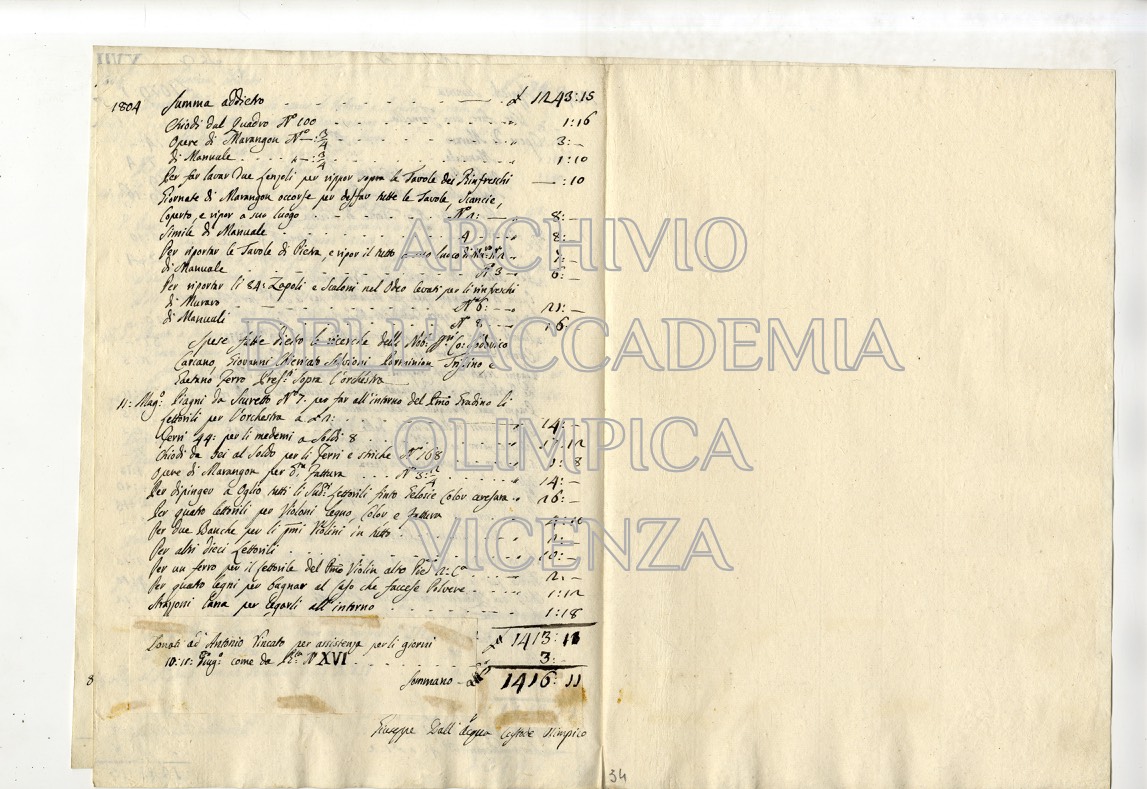 1804 Summa addietro £ 1243:15
Chiodi dal Quadro N° 100 1:16
Opere di Marangon N° —:3/4 3:—
di Manuale „ —:3/4 1:10
Per far lavar Due Lenzoli per ripor sopra la Tavole dei Rinfreschi —:10
Giornate di Marangon occorse per desfar tutte le Tavole, Scancie,
Coperto, e ripor a suo luogo N° 2:— 8:—
Simile di Manuale 4 — 8:—
Per riportar le Tavole di Pietra, e ripor il tutto a suo luoco di
di Manuale N° 3 6:—
Per riportar li 84: Zopoli e Scaloni nel Odeo levati per li rinfreschi
di Muraro N° 6:— 21:—
di Manuali N° 8:— 16:
Spese fatte dietro le ricerche delli Nob: Co: Lodovico
Carcano, Giovanni Chiericato Parminion Trissino, e
Gaetano Ferro Sopra l'orchestra
11: Mag° Piagni da Scuretto N° 7: per far all'intorno del Pmo Gradino li
Lettorili per l'orchestra a £ 2: 14:—
Ferri 44: per li medemi a Soldi 8 17:12
Chiodi da Sei al Soldo per li Ferri e striche N° 168 1:8
Opere di Marangon per da Fattura N° 3: 14:—
Per dipinger a Oglio tutti li Sudi Lettorili finto Gelosie Color 26:—
Per quatro lettorili per Violoni Legno, Color e Fattura
Per Due Banche per li pmi Violini in tutto 2:—
Per altri dieci Lettorili 10:—
Per un ferro per il Lettorile del Pmo Violin alto Piedi 2: Ca 2:—
Per quatro Legni per bagnar al Caso che faccesse Polvere 1:12
Strazzoni Lana per Legarli all'intorno 1:18
£ 1413:11
Donati ad Antonio Vincato per assistenza per li giorni
10:11: Giug° come da N° XVI 3:
Sommano 1416:11
Giuseppe Dall'Acqua Custode Olimpico
8
34
ARCHIVIO
DELL'ACCADEMIA
OLIMPICA
VICENZA